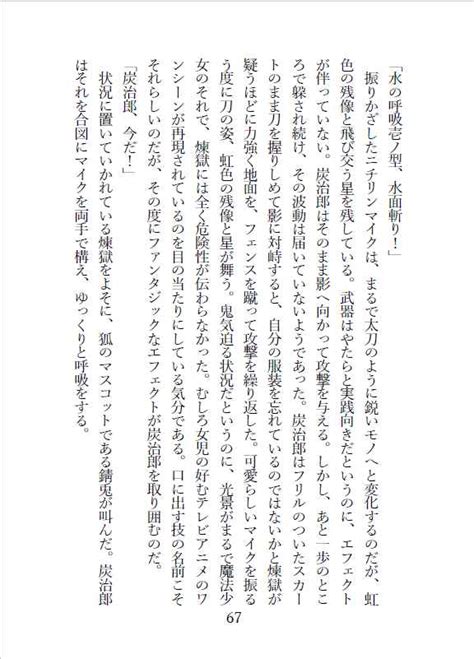 「水の呼吸壱ノ型、水面斬り！」
　振りかざしたニチリンマイクは、まるで太刀のように鋭いモノへと変化するのだが、虹
色の残像と飛び交う星を残している。武器はやたらと実践向きだというのに、エフェクト
が伴っていない。炭治郎はそのまま影へ向かって攻撃を与える。しかし、あと一歩のとこ
ろで躱され続け、その波動は届いていないようであった。炭治郎はフリルのついたスカー
トのまま刀を握りしめて影に対峙すると、自分の服装を忘れているのではないかと煉獄が
疑うほどに力強く地面を、フェンスを蹴って攻撃を繰り返した。可愛らしいマイクを振る
う度に刀の姿、虹色の残像と星が舞う。鬼気迫る状況だというのに、光景がまるで魔法少
女のそれで、煉獄には全く危険性が伝わらなかった。むしろ女児の好むテレビアニメのワ
ンシーンが再現されているのを目の当たりにしている気分である。口に出す技の名前こそ
それらしいのだが、その度にファンタジックなエフェクトが炭治郎を取り囲むのだ。
「炭治郎、今だ！」
　状況に置いていかれている煉獄をよそに、狐のマスコットである錆兎が叫んだ。炭治郎
はそれを合図にマイクを両手で構え、ゆっくりと呼吸をする。
67